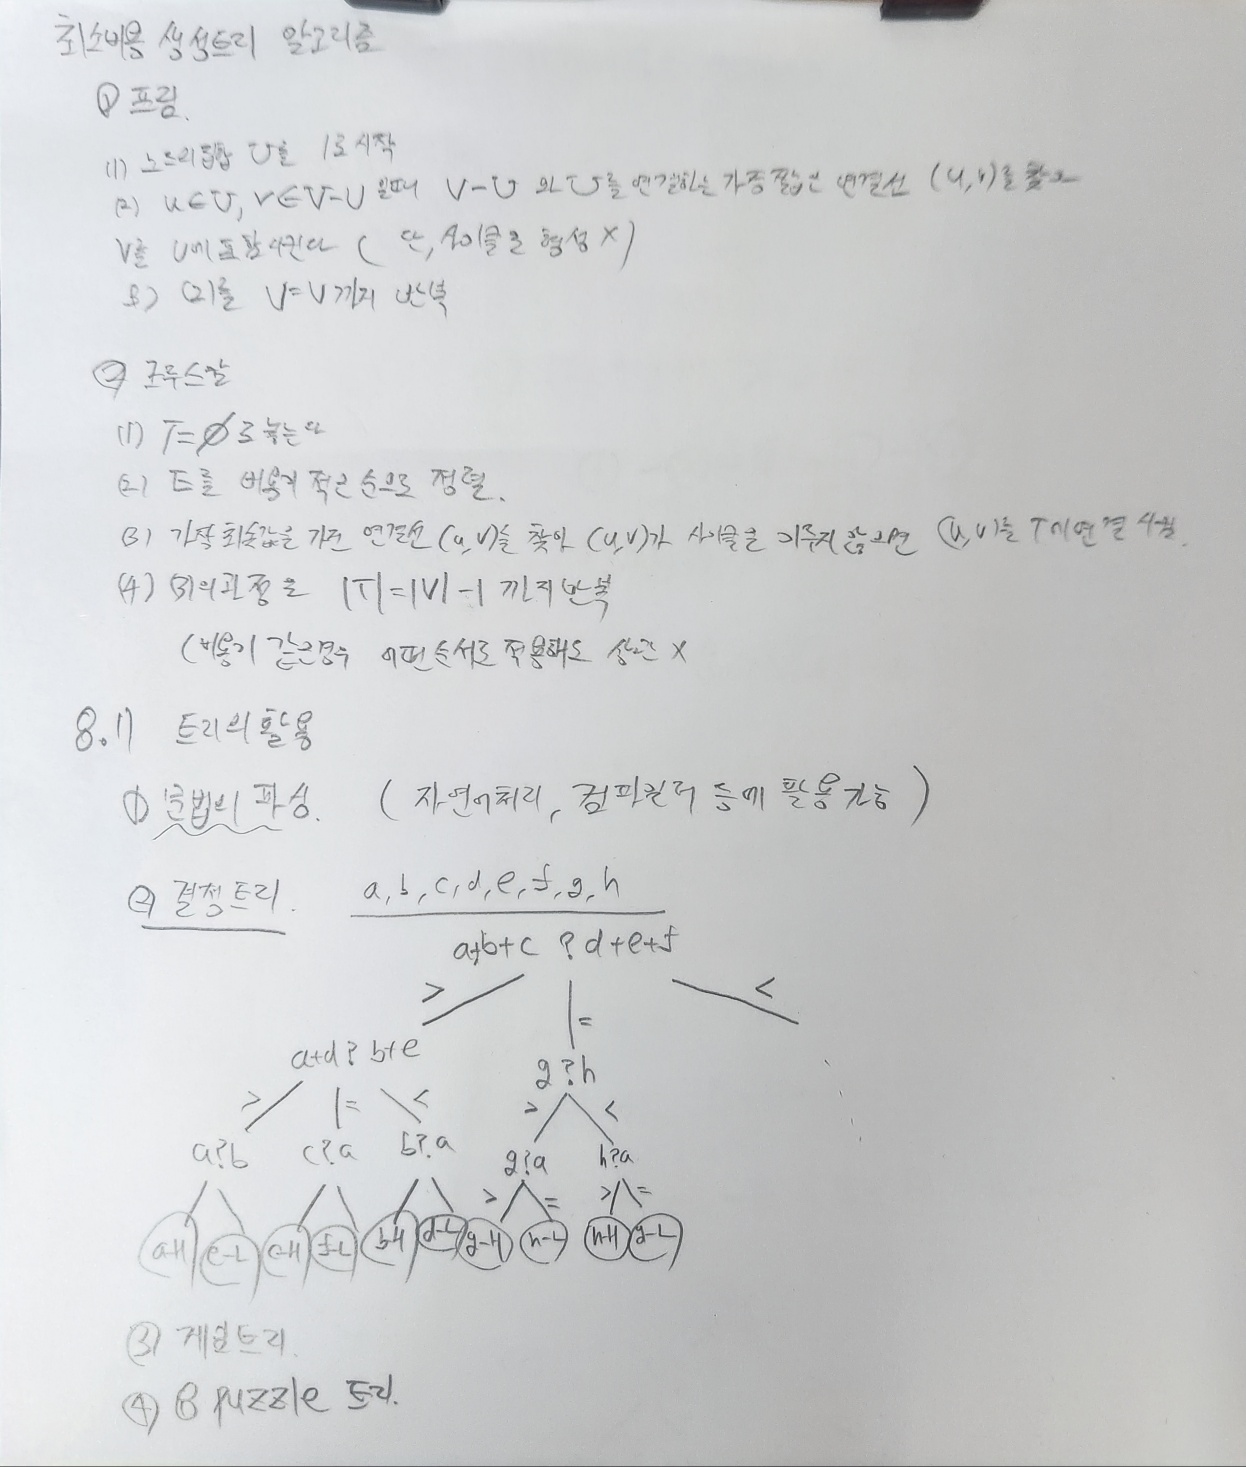 최소비용 생성트리 알고리즘
① 프림.
(1) 노드의 집합 U를 1로 시작
(2) u∈U, v∈V-U 일때 V-U 와 U를 연결하는 가장 짧은 연결선 (u,v)를 찾고
V를 U에 포함시킨다 (단, 사이클은 형성 X)
3) (2)를 U=V까지 반복
② 크루스칼
(1) T=∅로 놓는다
(2) E를 비용가 적은 순으로 정렬.
(3) 가장 최솟값을 가진 연결선 (u,v)를 찾아 (u,v)가 사이클을 이루지 않으면 (u,v)를 T에 연결 시킴.
(4) (3)의 과정을 |T|=|V|-1 까지 반복
(비용이 같은경우 어떤순서로 적용해도 상관 X
8.11 트리의 활용
① 문법의 파싱. (자연어처리, 컴파일러 등에 활용가능)
② 결정트리. a, b, c, d, e, f, g, h
a+b+c ? d+e+f
> = <
a+d ? b+e g ? h
> = < > <
a?b c?a b?a g?a h?a
> = > =
a-H e-L c-H f-L b-H d-L g-H h-L h-H g-L
③ 게임트리.
④ 8 puzzle 트리.